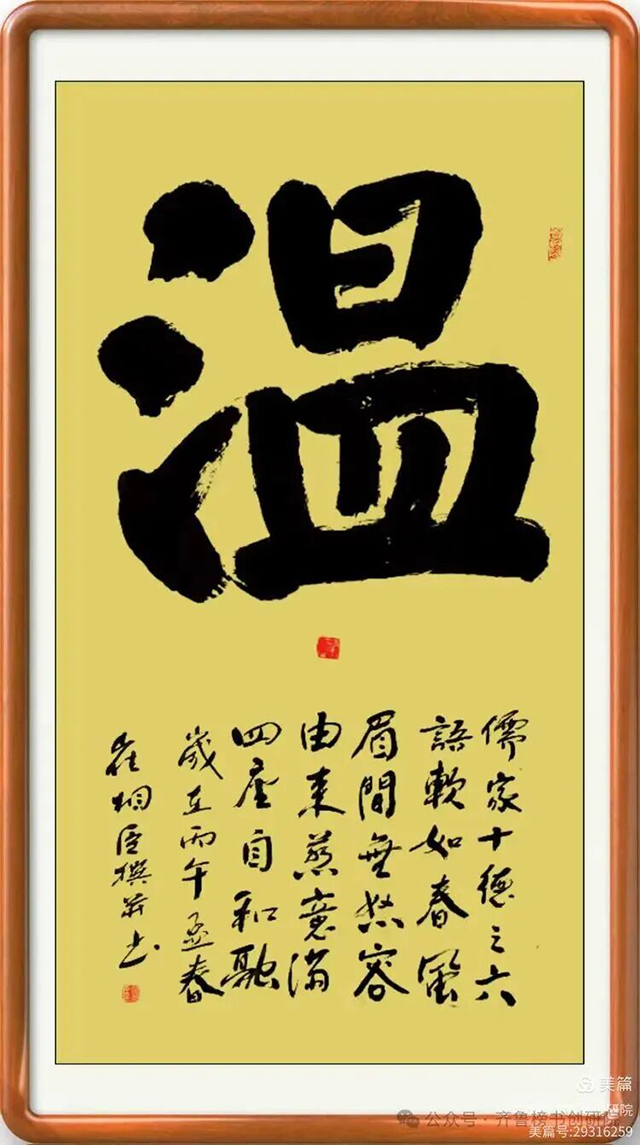 温
儒家十德之六
語軟如春風
眉間無怒容
由来慈意滿
四座自和融
歲在丙午孟春
崔桐臣撰并书
美篇
研院
公众号 · 齐鲁榜书创研院
美篇号:29316259